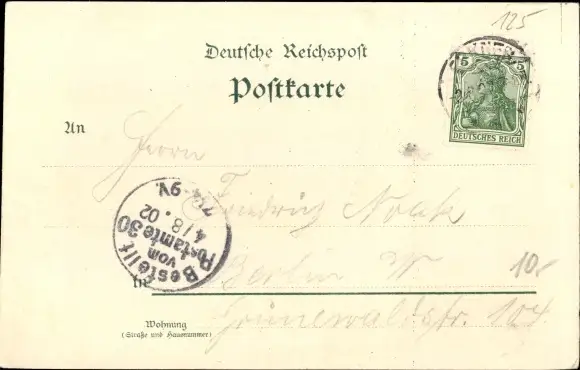 125
Deutsche Reichspost
Postkarte
5 5
DEUTSCHES REICH
An
Herrn
Friedrich Noack
Bestellt
vom
Postamte 30
4/8. 02
7¼-9V.
In Berlin W.
10.-
Grunewaldstr. 104
Wohnung
(Straße und Hausnummer)